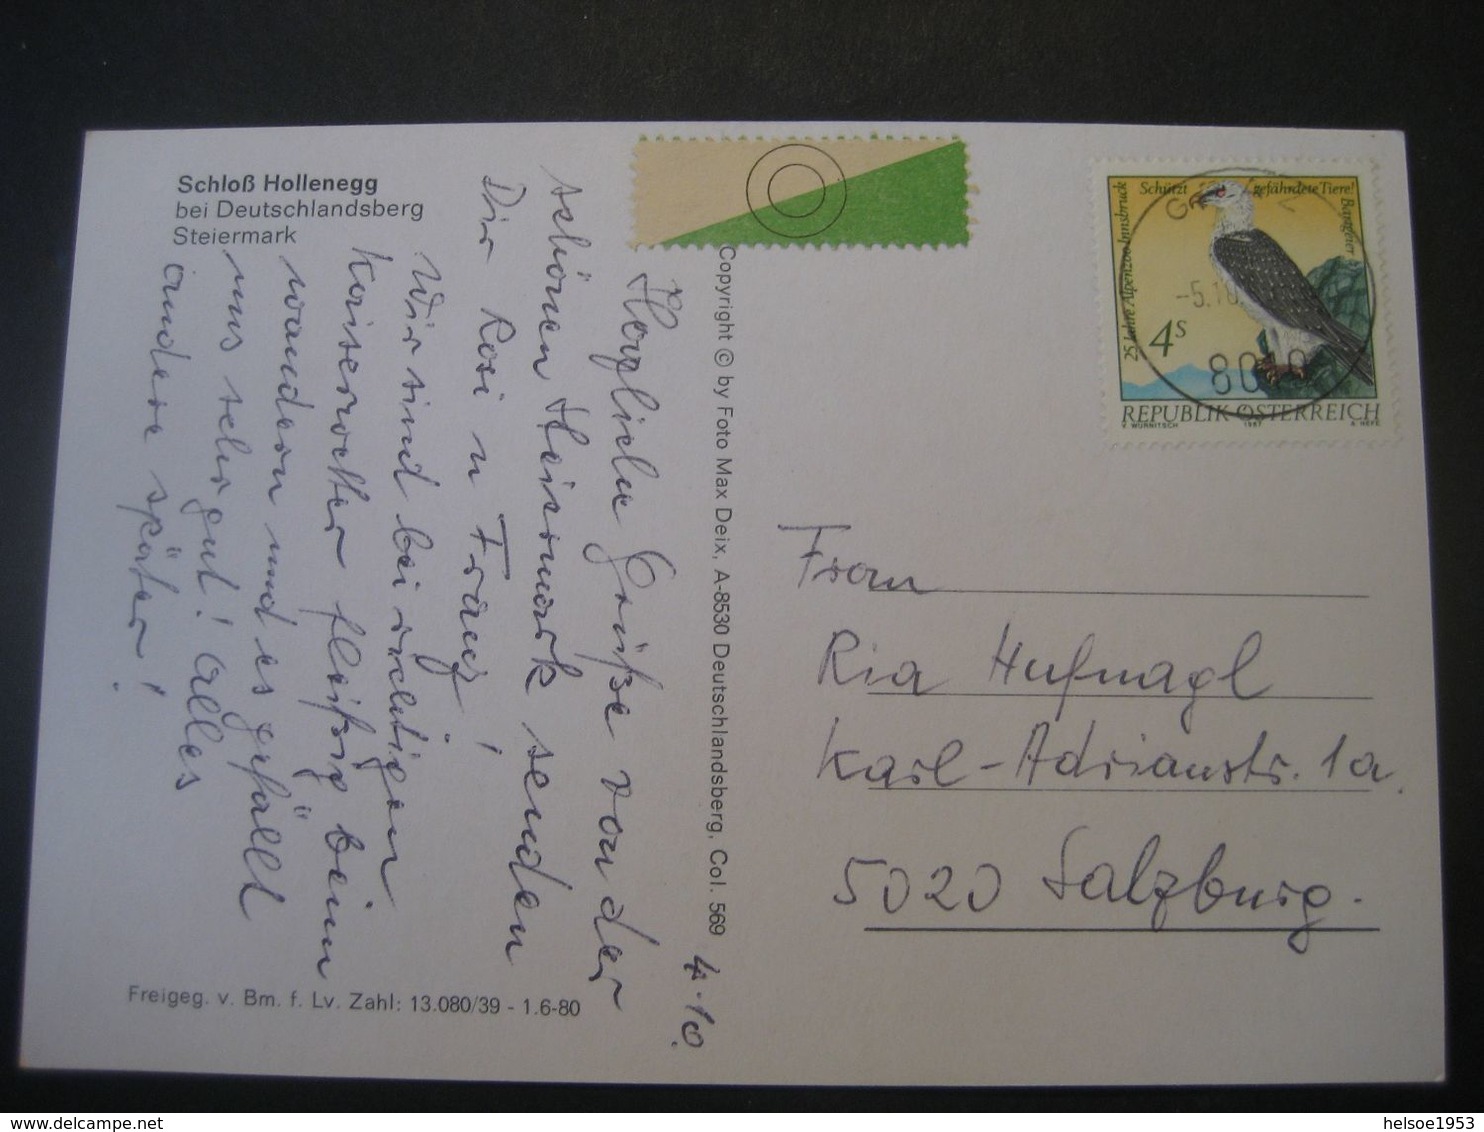 Schloß Hollenegg
bei Deutschlandsberg
Steiermark
4.10.
Herzliche Grüße von der
schönen Steiermark senden
Dir Rosi u Franz!
Wir sind bei richtigen
Kaiserwetter fleißig beim
wandern und es gefällt
uns sehr gut! Alles
andere später!
Freigeg. v. Bm. f. Lv. Zahl: 13.080/39 - 1.6-80
Copyright © by Foto Max Deix, A-8530 Deutschlandsberg, Col. 569
25 Jahre Alpenzoo Innsbruck
Schützt gefährdete Tiere!
Bartgeier
4S
REPUBLIK ÖSTERREICH
V. WURNITSCH 1987 A. HEFE
-5.10.
8010
Frau
Ria Hufnagl
Karl-Adrianstr. 1a.
5020 Salzburg.
helsoe1953
delcampe.net